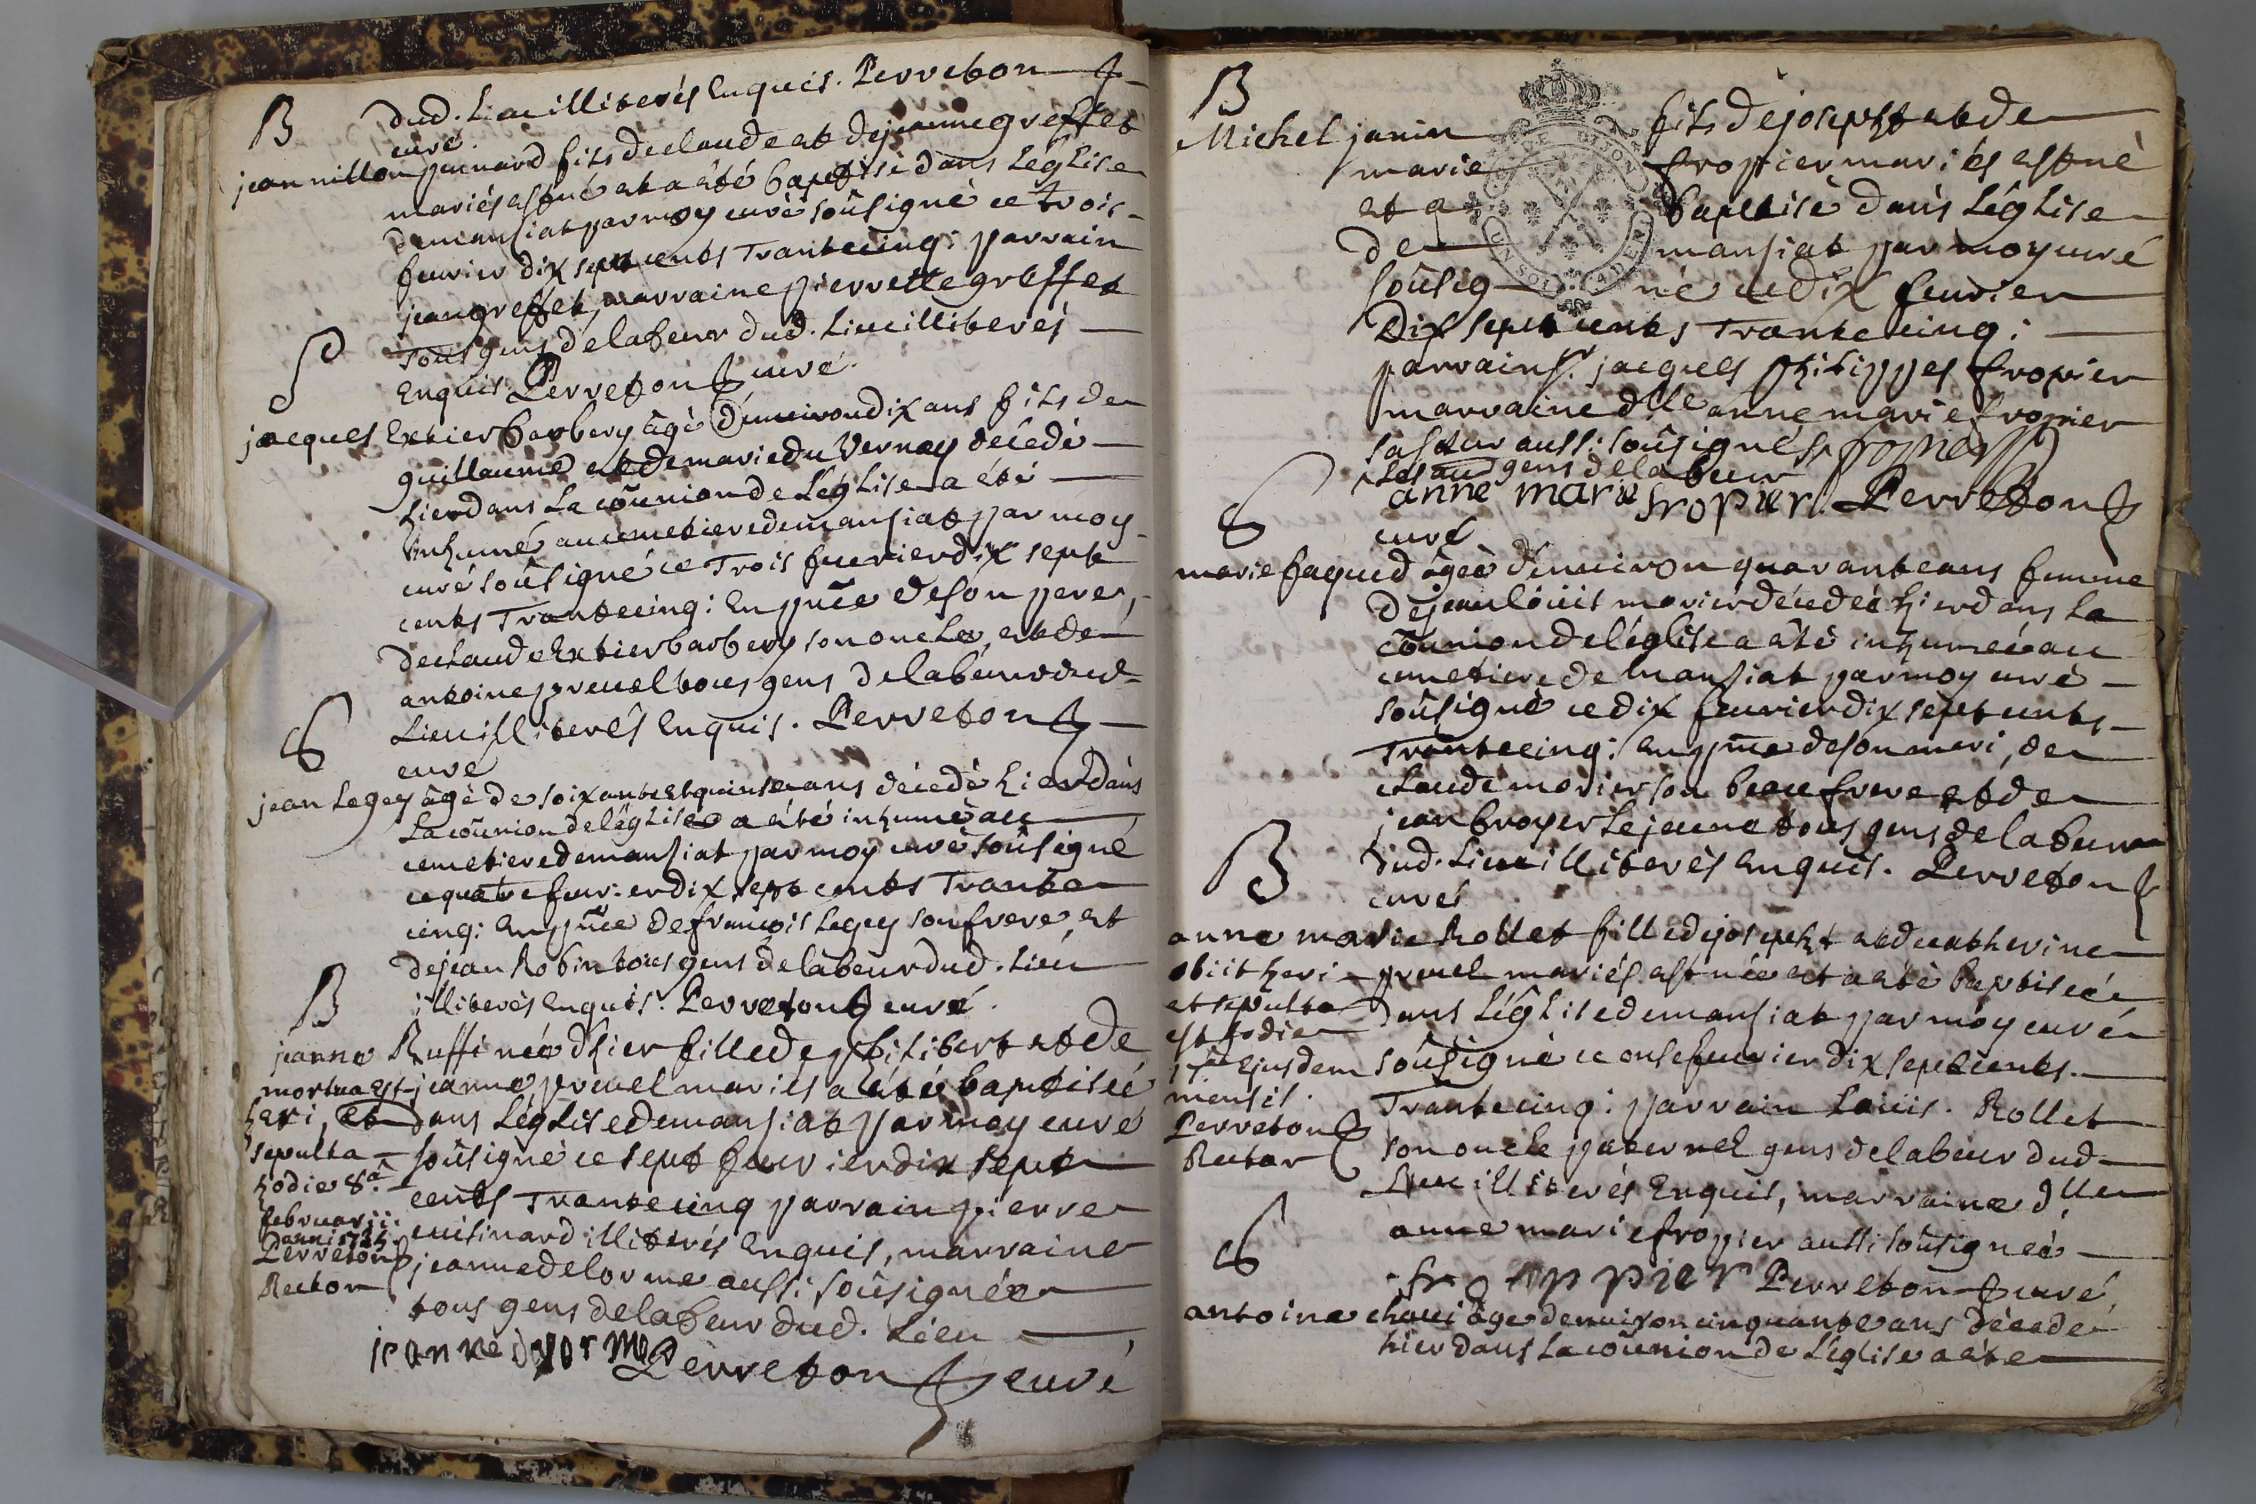 dud. Lieu illiterés Enquis. Perreton
curé
B
jean nillon punard fils de claude et de jeanne greffet
mariés est né et a été baptisé dans L'église
de mansiat par moy curé soûsigné ce trois
feurier dix sept cents Trante cinq: parrain
jean greffet, marraine pierrette greffet
tous gens de labeur dud. Lieu illiterés
Enquis. Perreton curé.
S
jacques Extier barbery âgé d'enuiron dix ans fils de
guillaume et de marie du Vernay décedé
hier dans La coñunion de L'église a été
Inhumé au cimetiere de mansiat par moy
curé soûsigné ce Trois feurier dix sept
cents Trante cinq: En pñce de son pere,
de claude Extier barbery son oncle, et de
antoine preuel tous gens de labeur dud.
Lieu illiterés Enquis. Perreton
curé
S
jean Legey âgé de soixante et quinse ans décedé hier dans
La coñunion de L'église a été inhumé au
cemetiere de mansiat par moy curé soûsigné
ce quatre feurier dix sept cents Trante
cinq: En pñce de françois Legey son frere, et
de jean Robin tous gens de labeur dud. Lieu
illiterés Enquis. Perreton curé.
B
jeanne Ruffi née d'hier fille de philibert et de
jeanne preuel mariés a été baptisée
dans L'église de mansiat par moy curé
soûsigné ce sept feurier dix sept
cents Trante cinq parrain pierre
cuisinard illiterés Enquis, marraine
jeanne delorme aussi soûsignée
tous gens de labeur dud. Lieu
jeanne delorme
Perreton curé
mortua est
heri, et
sepulta
hodie 8.a
februarii
anni 1735.
Perreton
Rector
B
Michel janin fils de josepht et de
marie fropier mariés est né
et a été baptisé dans L'église
de mansiat par moy curé
soûsigné ce dix feurier
Dix sept cents Trante cinq:
parrain sr. jacques philippes fropier
marraine dlle anne marie fropier
sa sœur aussi soûsignés. fropier
gens de labeur
anne marie fropier. Perreton
curé
S
marie faqued âgée d'enuiron quarante ans femme
de jean Loüis morier décedée hier dans la
coñunion de l'église a été inhumée au
cimetiere de mansiat par moy curé
soûsigné ce dix feurier dix sept cents
Trante cinq: En pñce de son mari, de
claude morier son beau frere et de
jean broyer Le jeune tous gens de labeur
dud. Lieu illiterés Enquis. Perreton
curé
B
anne marie Rollet fille de josepht et de catherine
preuel mariés est née et a été baptisée
dans L'église de mansiat par moy curé
soûsigné ce onse feurier dix sept cents
Trante cinq: parrain Loüis Rollet
son oncle paternel gens de labeur dud
Lieu illiterés Enquis, marraine dlle
anne marie fropier aussi soûsignée
froppier Perreton curé
obiit heri
et sepulta
est hodie
ejusdem
mensis.
Perreton
Rector
S
antoine chaui âgé d'enuiron cinquante ans décedé
hier dans La coñunion de L'église a été